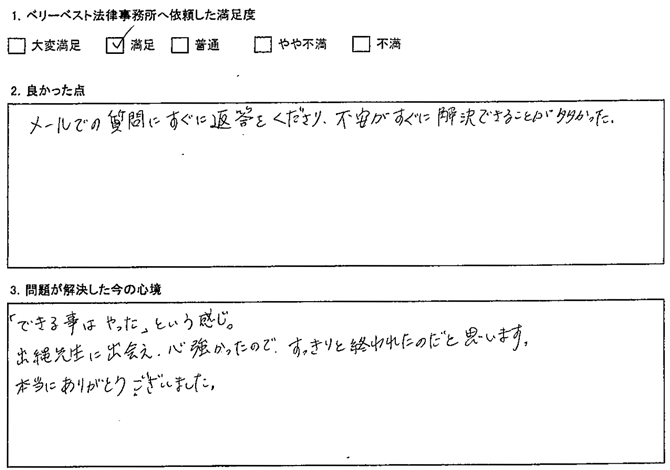 1. ベリーベスト法律事務所へ依頼した満足度
大変満足 満足 普通 やや不満 不満
2. 良かった点
メールでの質問にすぐに返答をくださり、不安がすぐに解決できることが多かった。
3. 問題が解決した今の心境
「できる事はやった」という感じ。
出縄先生に出会え、心強かったので、すっきりと終われたのだと思います。
本当にありがとうございました。